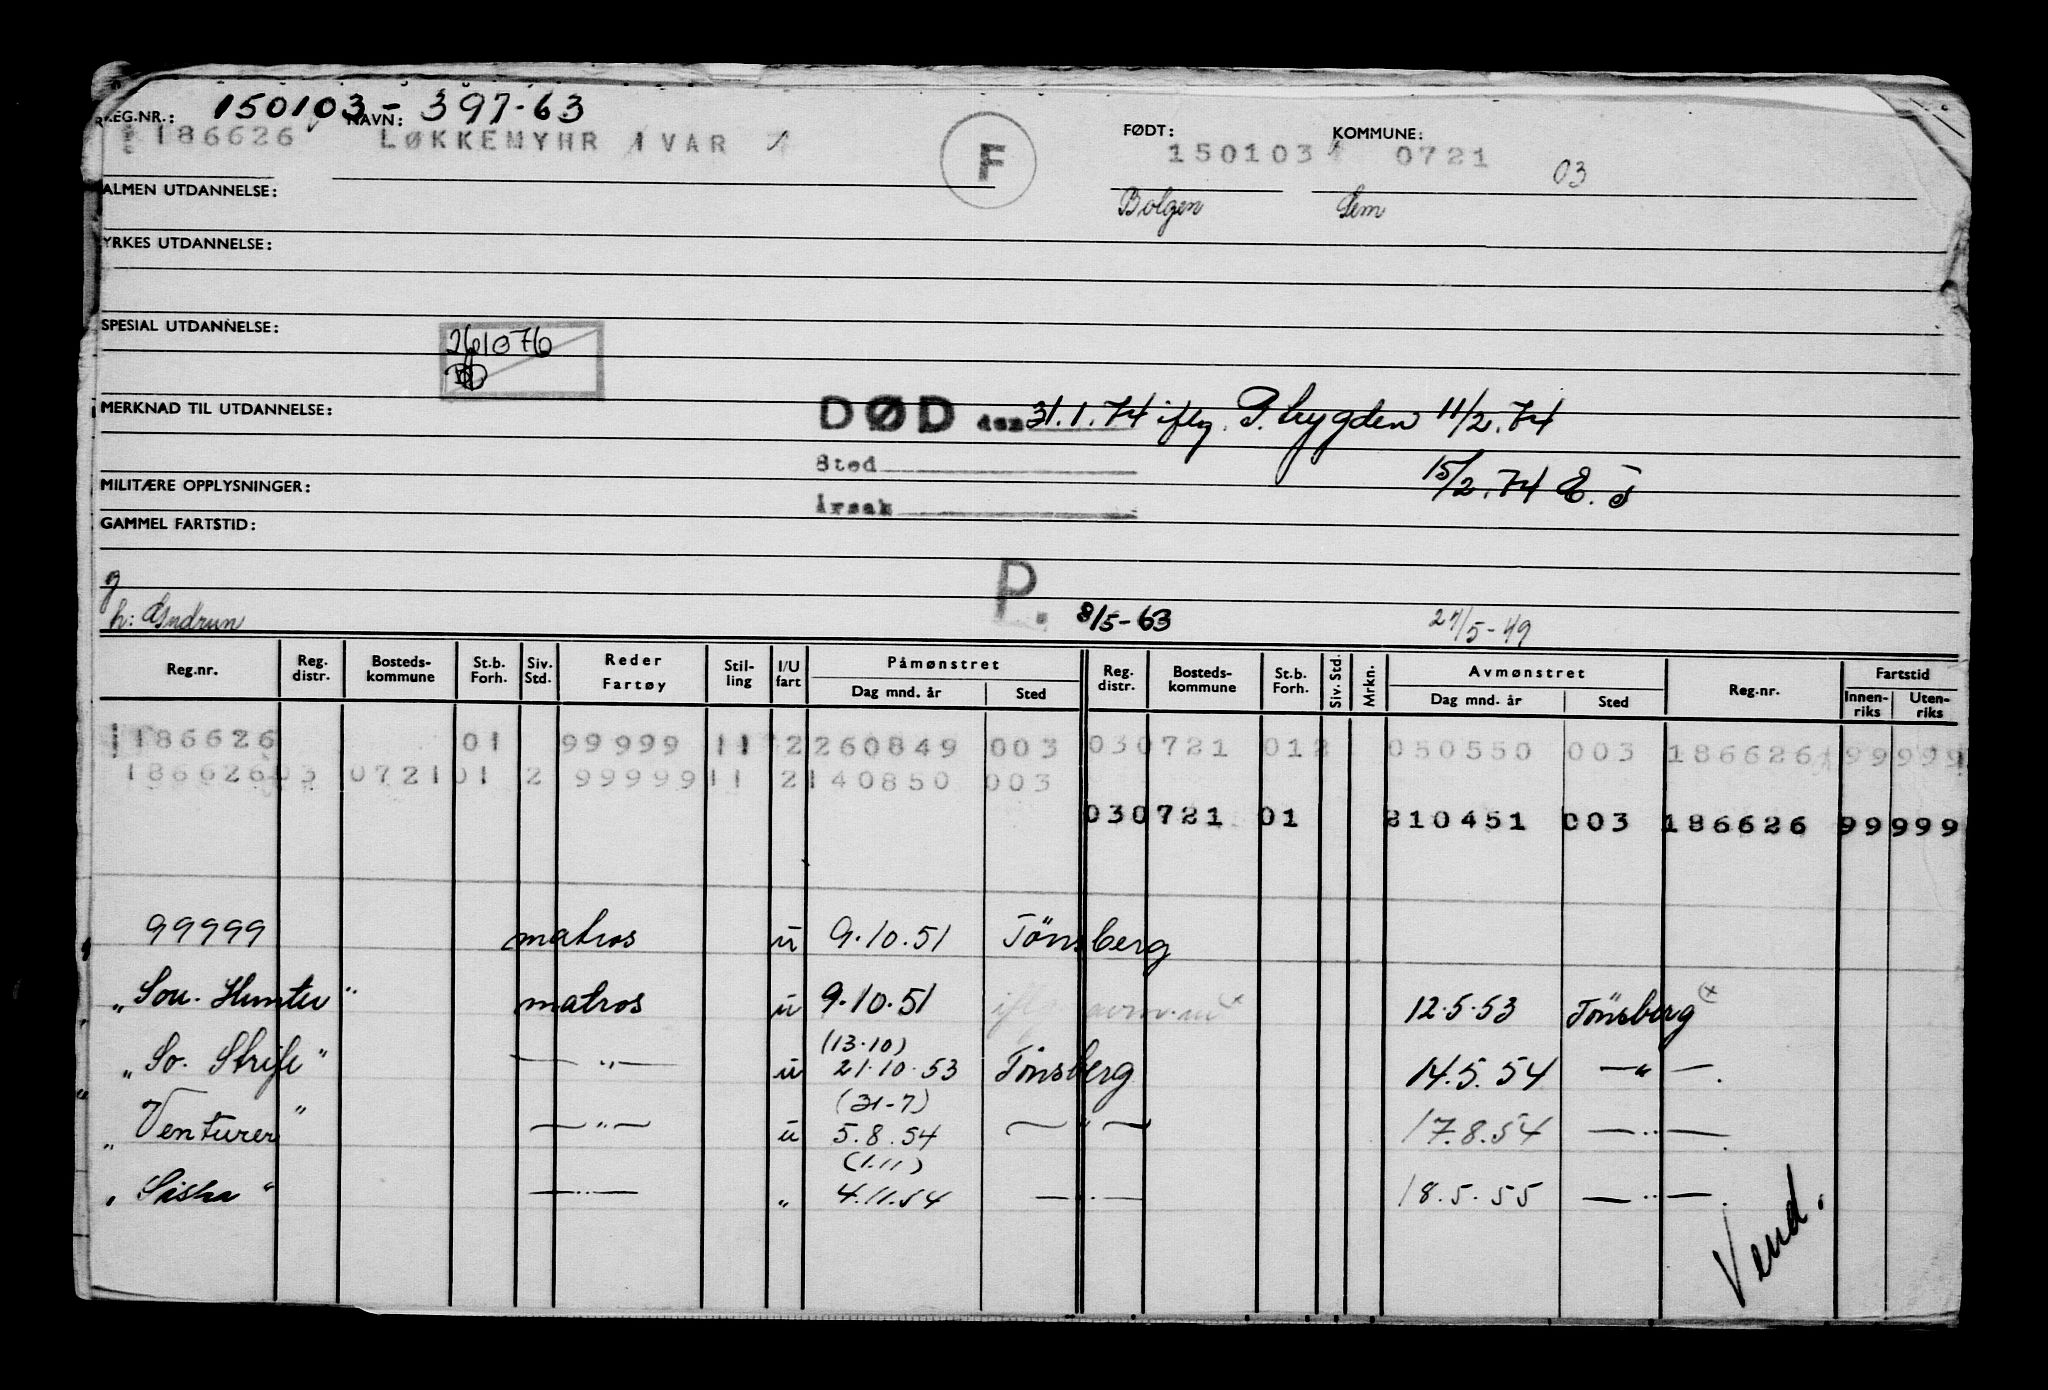 150103-397-63
REG.NR.: NAVN: FØDT: KOMMUNE:
186626 LØKKEMYHR IVAR F 150103 0721 03
ALMEN UTDANNELSE: Bolgen Sem
YRKES UTDANNELSE:
SPESIAL UTDANNELSE:
261076
MERKNAD TIL UTDANNELSE:
DØD den 31.1.74 iflg. P. trygden 11/2.74
Sted
15/2.74
MILITÆRE OPPLYSNINGER:
Årsak
GAMMEL FARTSTID:
g
P. 8/5-63 27/5-49
h: Gudrun
Reg.nr. Reg. distr. Bosteds-kommune St.b. Forh. Siv. Std. Reder Fartøy Stil-ling I/U fart Påmønstret Dag mnd. år Sted Reg. distr. Bosteds-kommune St.b. Forh. Siv. Std. Mrkn. Avmønstret Dag mnd. år Sted Reg.nr. Fartstid Innen-riks Uten-riks
186626 01 99999 11 2 260849 003 03 0721 01 2 050550 003 186626 99 999
186626 03 0721 01 2 99999 11 2 140850 003
03 0721 01 210451 003 186626 99 999
99999 matros u 9.10.51 Tönsberg
"Sou. Hunter" matros u 9.10.51 12.5.53 Tönsberg x
(13.10)
"So. Strife" —"— u 21.10.53 Tönsberg 14.5.54 —"—.
(31-7)
"Venturer" —"— u 5.8.54 —"— 17.8.54 —"—.
(1.11)
"Sisha" —"— " 4.11.54 —"— 18.5.55 —"—.
Vend.